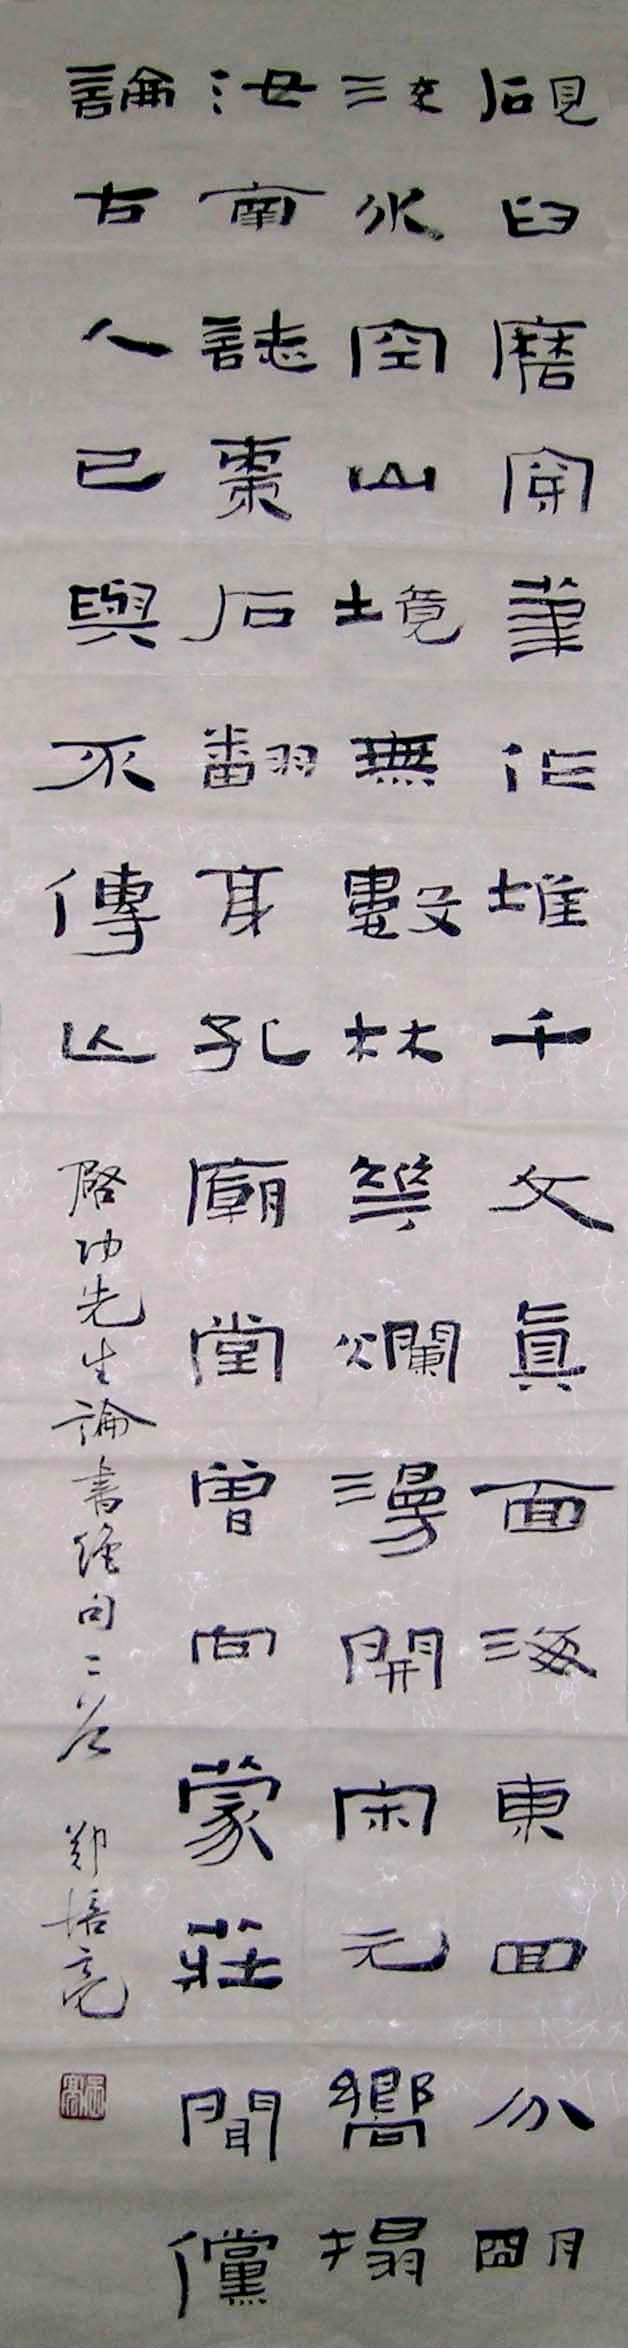 硯臼磨穿筆作堆千文真面海東回分明
流水空山境無數林華爛漫開宋元響搨
汝南誌棗石翻身孔廟堂曾向蒙莊聞儻
論古人已與不傳亡
啓功先生論書絕句二首 鄭培亮